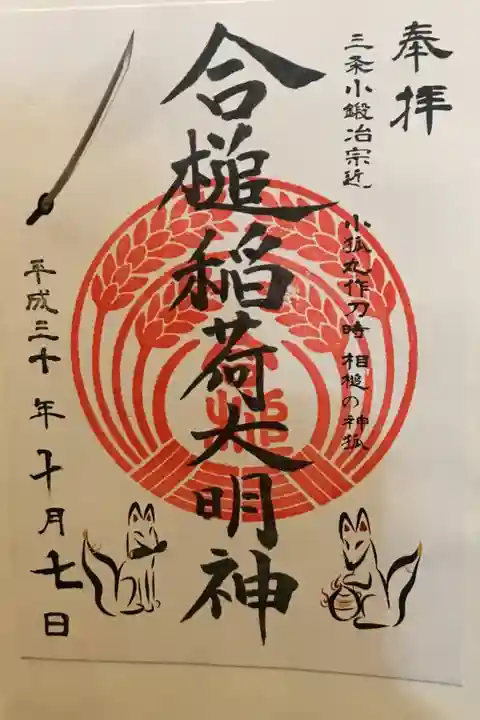 奉拝
三条小鍛冶宗近 小狐丸作刀時 相槌の神狐
合槌稲荷大明神
平成三十年十月七日